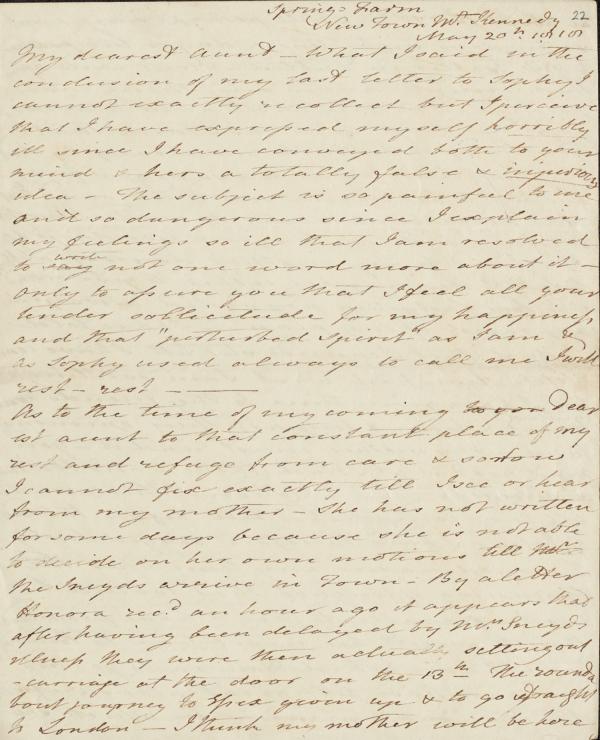 Spring-Farm 22
New Town Mt. Kennedy
May 20th 1818
My dearest Aunt – What I said in the
conclusion of my last letter to Sophy I
cannot exactly recollect but I perceive
that I have expressed myself horribly
ill since I have conveyed both to your
mind & hers a totally false & injurious
idea – The subject is so painful to me
and so dangerous since I explain
my feelings so ill that I am resolved
write
to say not one word more about it –
only to assure you that I feel all your
tender sollicitude for my happiness
and that "perturbed spirit" as I am &
as Sophy used always to call me I will
rest – rest –
As to the time of my coming to you Dear
est aunt to that constant place of my
rest and refuge from care & sorrow
I cannot fix exactly till I see or hear
from my mother – She has not written
for some days because she is not able
to decide on her own motions till Mrs
the Sneyds arrive in Town – By a letter
Honora recd an hour ago it appears that
after having been delayed by Mrs Sneyds
illness they were then actually setting out
– carriage at the door on the 13th The rounda
bout journey to given up & to go straight
to London – I think my mother will be here